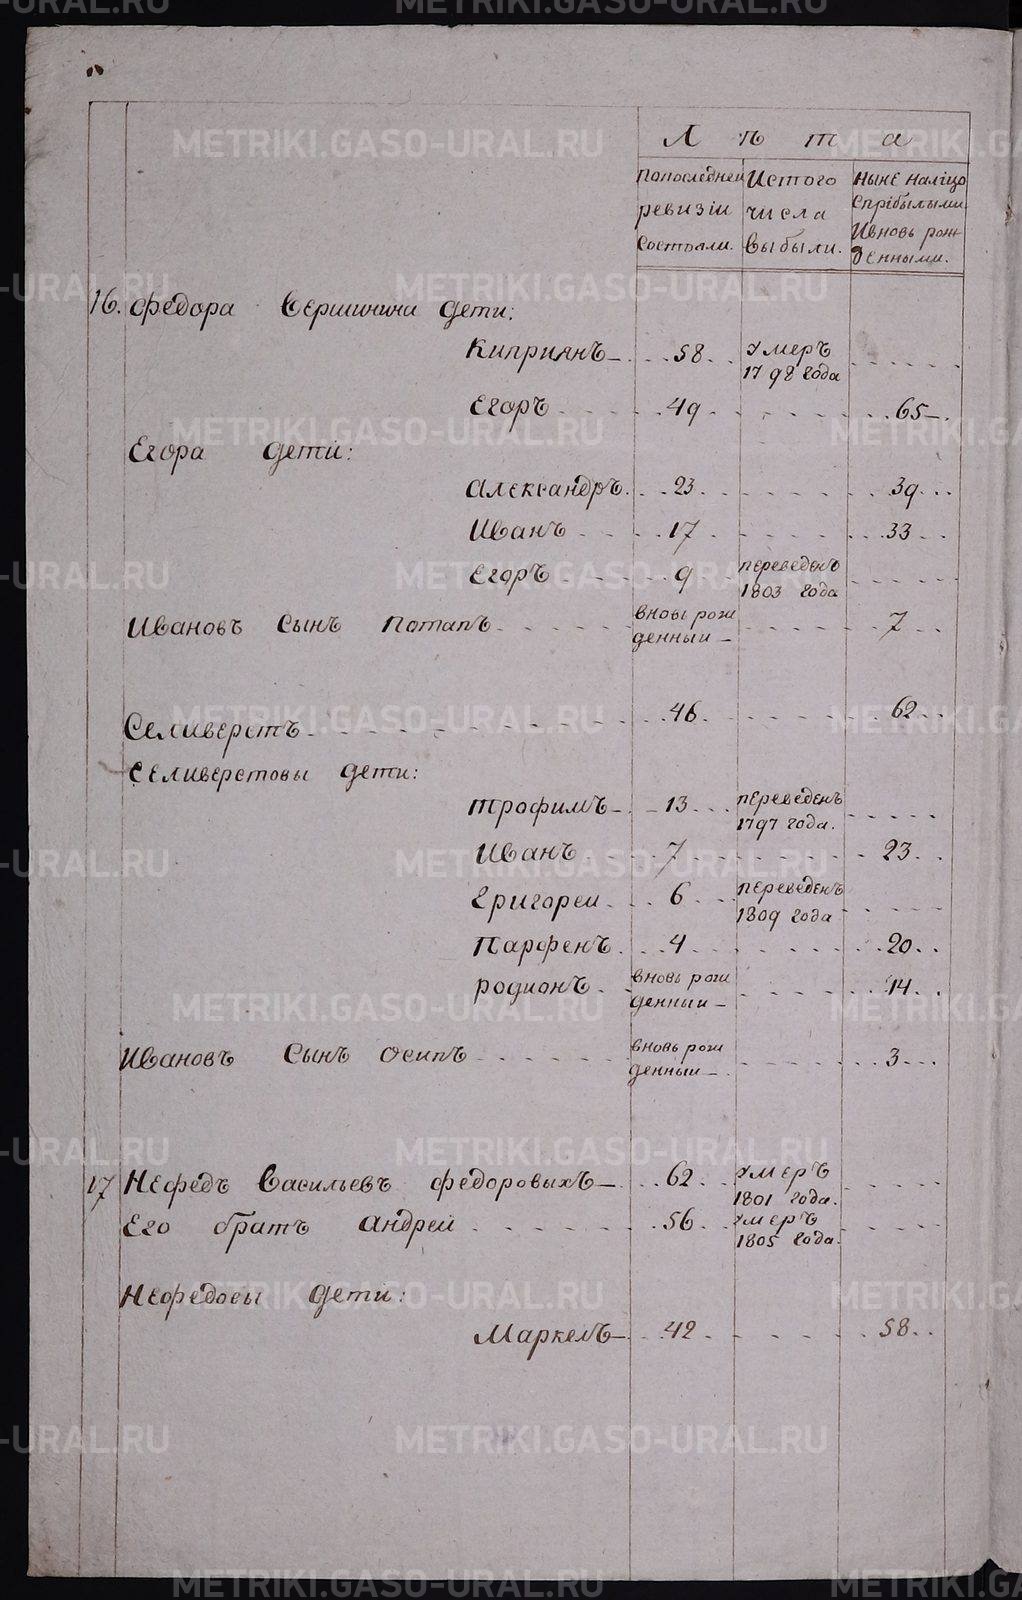 Л ѣ т а
Попоследней Истого Ныне налiцо
ревизiи числа Спрiбылыми
Состояли. Выбыли. Ивновь рож
денными.
16. Федора Вершинина дети:
Киприянъ 58 Умеръ
1798 года
Егоръ 49 65
Егора дети:
Александръ 23 39
Иванъ 17 33
Егоръ 9 переведенъ
1803 года
Ивановъ Сынъ Потапъ вновь рож 7
денный
Селиверстъ 46 62
Селиверстовы дети:
Трофимъ 13 переведенъ
1797 года.
Иванъ 7 23
Григореи 6 переведенъ
1809 года
Парфенъ 4 20
родионъ вновь рож 14
денныи
Ивановъ Сынъ Осипъ вновь рож 3
денный
17 Нефедъ Васильевъ Федоровыхъ 62 Умеръ
1801 года.
Его братъ Андреи 56 Умеръ
1805 года.
Нефедовы дети:
Маркелъ 42 58
METRIKI.GASO-URAL.RU